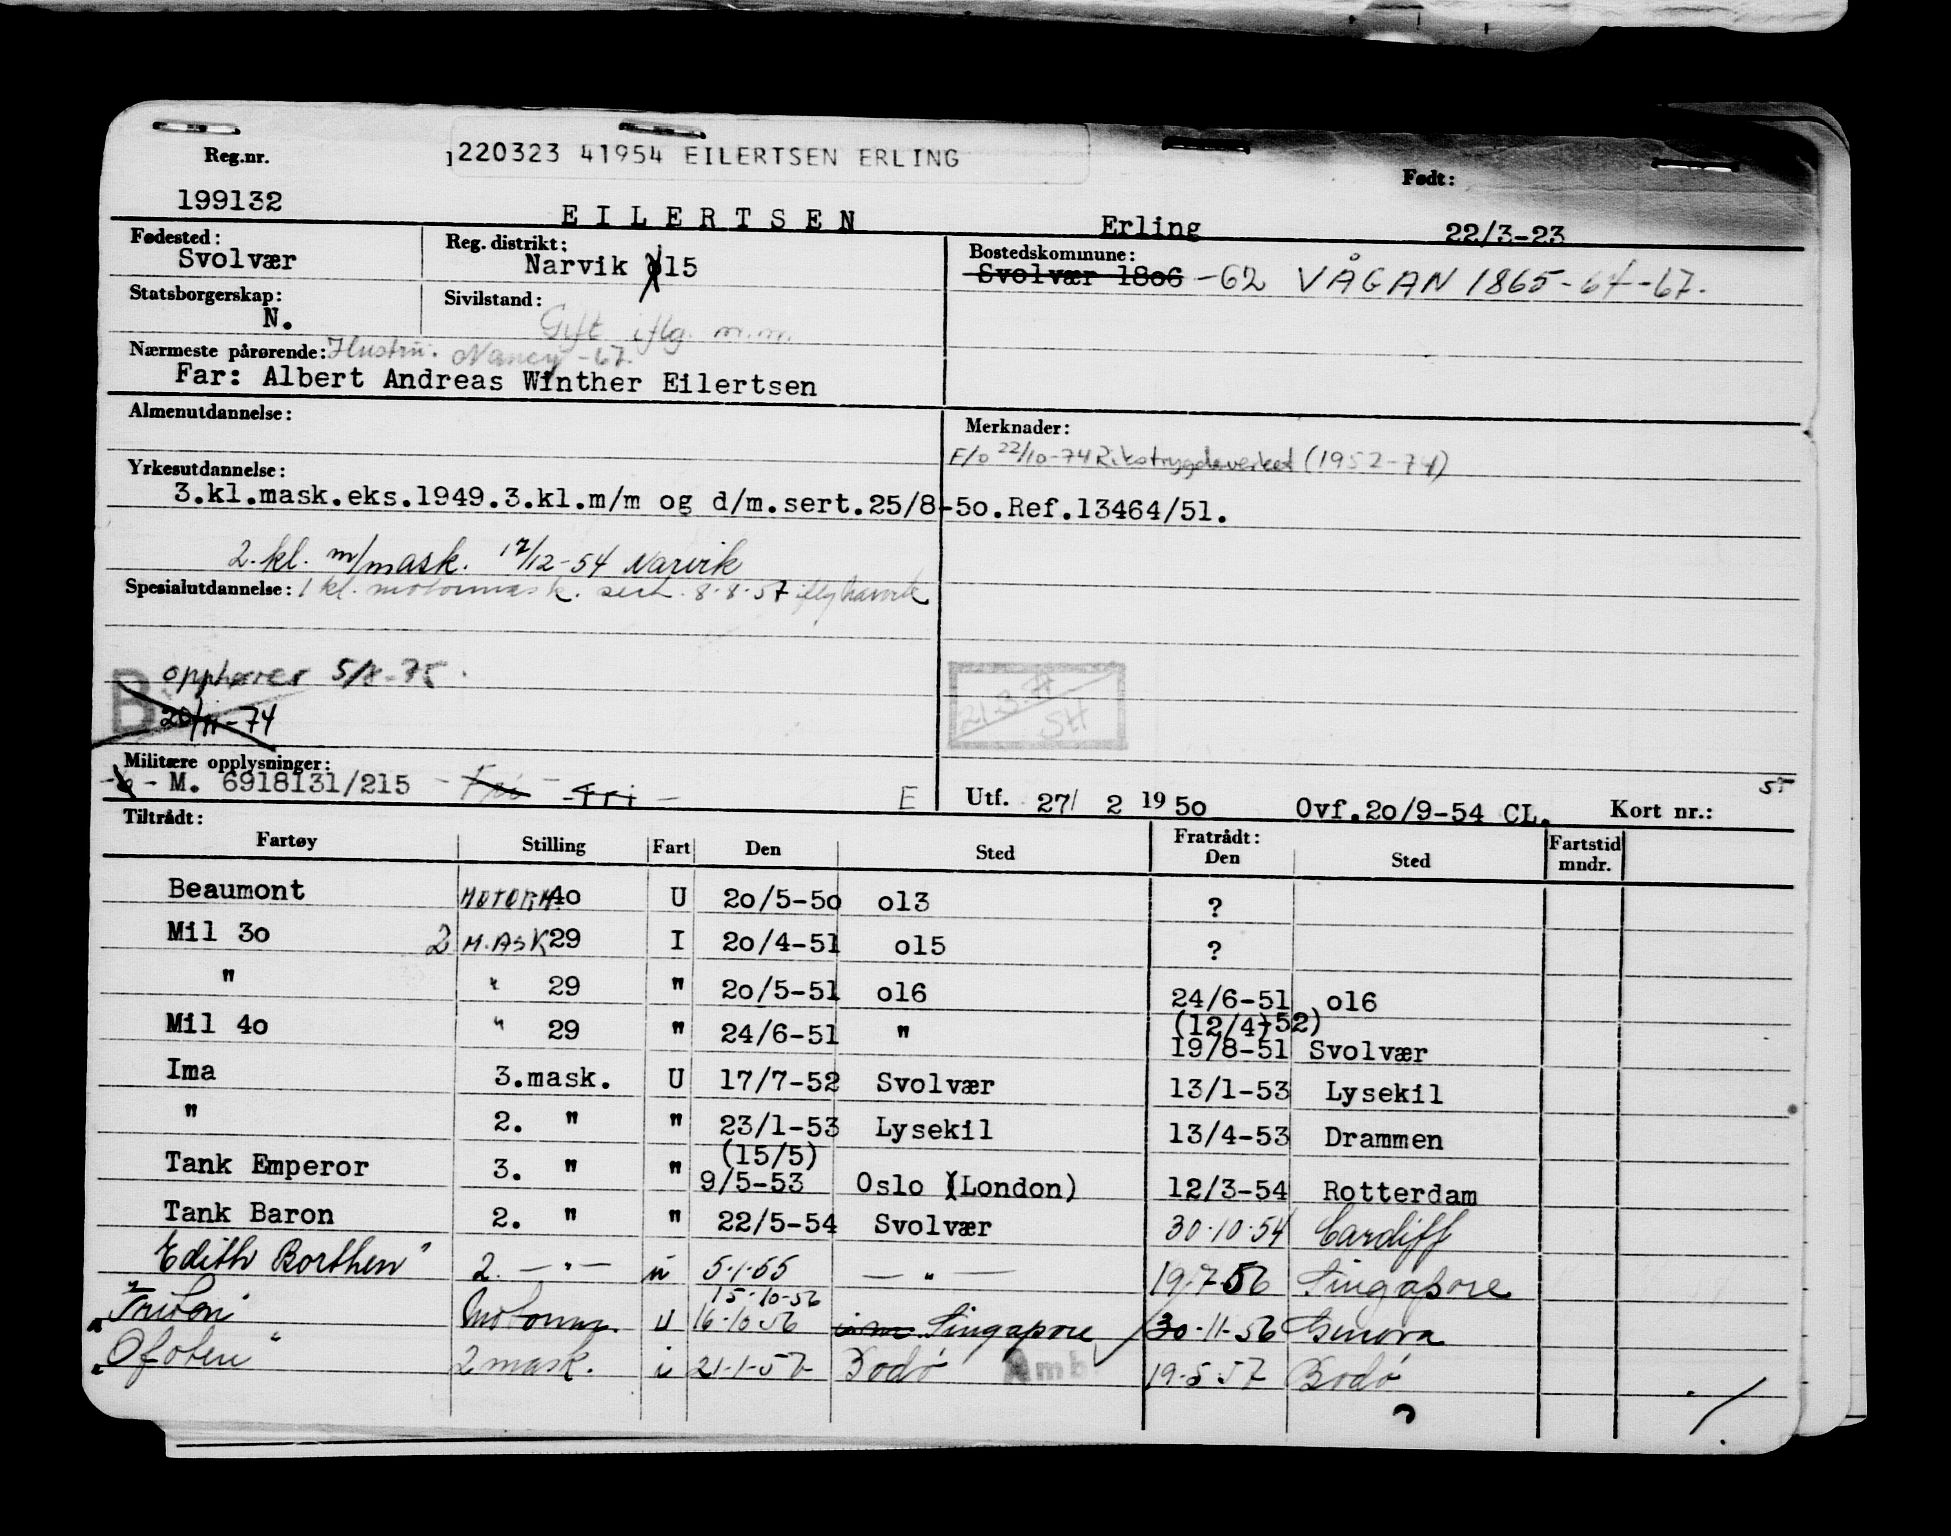 Reg.nr.
220323 41954 EILERTSEN ERLING
Født:
199132
EILERTSEN Erling 22/3-23
Fødested: Reg. distrikt: Bostedskommune:
Svolvær Narvik 15 Svolvær 1806 -62 VÅGAN 1865-64-67.
Statsborgerskap: Sivilstand:
N. Gift iflg. m.m.
Nærmeste pårørende: Hustru. Nancy -67.
Far: Albert Andreas Winther Eilertsen
Almenutdannelse: Merknader:
F/o 22/10-74 Rikstrygdeverket (1952-74)
Yrkesutdannelse:
3.kl.mask.eks.1949.3.kl.m/m og d/m.sert.25/8-50.Ref.13464/51.
2.kl. m/mask. 17/12-54 Narvik
Spesialutdannelse: 1 kl. motormask. sert. 8.8.57 iflg Narvik
opphører 5/8-75.
B 20/11-74
21.3. SH
Militære opplysninger:
- M. 6918131/215 - Fri - - Fri - E Utf. 27/ 2 1950 Ovf.20/9-54 CL. Kort nr.:
Tiltrådt: Fratrådt:
Fartøy Stilling Fart Den Sted Den Sted Fartstid mndr.
Beaumont MOTORM. 40 U 20/5-50 o13 ?
Mil 30 2 M.ASK 29 I 20/4-51 o15 ?
" " 29 " 20/5-51 o16 24/6-51 o16
Mil 40 " 29 " 24/6-51 " (12/4-52)
19/8-51 Svolvær
Ima 3.mask. U 17/7-52 Svolvær 13/1-53 Lysekil
" 2. " " 23/1-53 Lysekil 13/4-53 Drammen
(15/5)
Tank Emperor 3. " " 9/5-53 Oslo (London) 12/3-54 Rotterdam
Tank Baron 2. " " 22/5-54 Svolvær 30.10.54 Cardiff
Edith Borthen" 2. — " — u 5.1.55 — " — 19.7.56 Singapore
15.10.56
"Triton" Motorm. u 16.10.56 Singapore 30.11.56 Genova
"Ofoten" 2 mask. i 21.1.57 Bodø Amb 19.5.57 Bodø